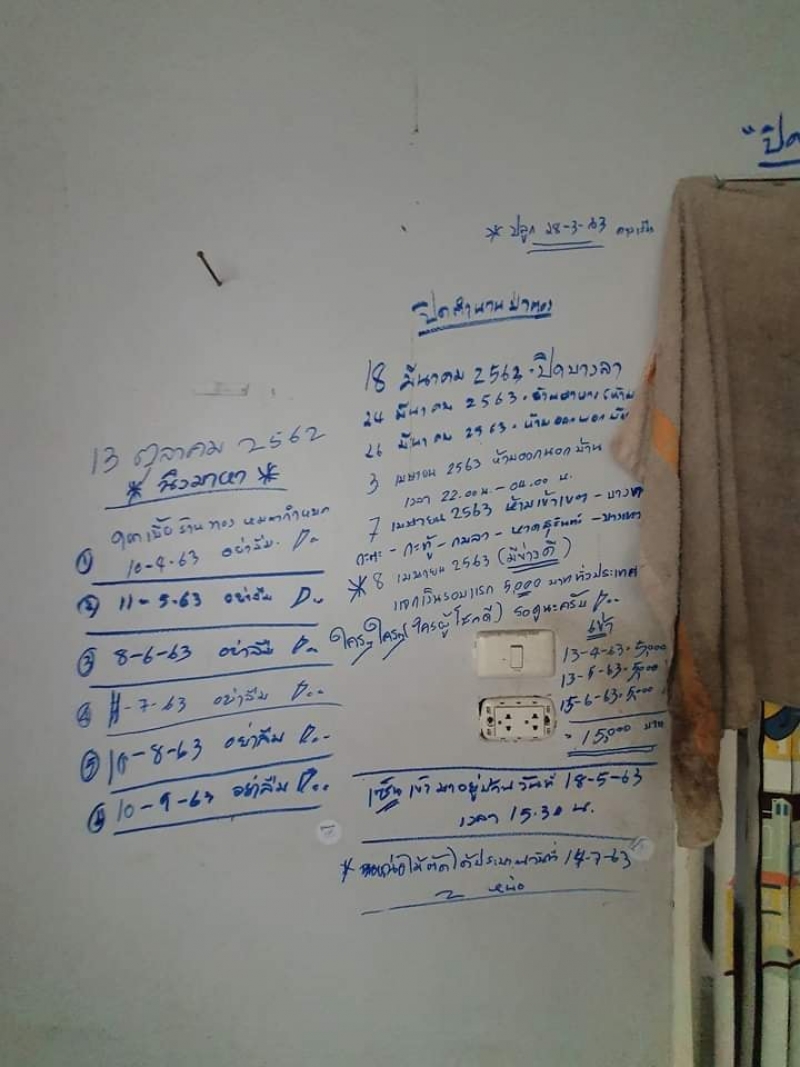 "ปิด
* ปลูก 28-3-63
ปิดตำนานป่าตอง
18 มีนาคม 2563 · ปิดบางลา
24 มีนาคม 2563 ·
26 มีนาคม 2563 · ห้ามออกนอก
3 เมษายน 2563 ห้ามออกนอกบ้าน
เวลา 22.00 น. - 04.00 น.
7 เมษายน 2563 ห้ามเข้าเขต - บางเทา
กะตะ - กะทู้ - กมลา - หาดสุรินทร์ - บางเทา
* 8 เมษายน 2563 (มีข่าวดี)
แจกเงินรอบแรก 5,000 บาททั่วประเทศ
ใครๆ ใครๆ (ใครผู้โชคดี) รอดูนะครับ
เข้า
13-4-63 · 5,000
13-5-63 · 5,000
15-6-63 · 5,000
= 15,000 บาท
เซ็นเข้ามาอยู่บ้านวันที่ 18-5-63
เวลา 15.30 น.
* หน่อไม้ตัดได้ประมาณวันที่ 14-7-63
2 หน่อ
13 ตุลาคม 2562
* นิวมาหา *
ร้านทอง
① 10-4-63 อย่าลืม
② 11-5-63 อย่าลืม
③ 8-6-63 อย่าลืม
④ 11-7-63 อย่าลืม
⑤ 10-8-63 อย่าลืม
⑥ 10-9-63 อย่าลืม